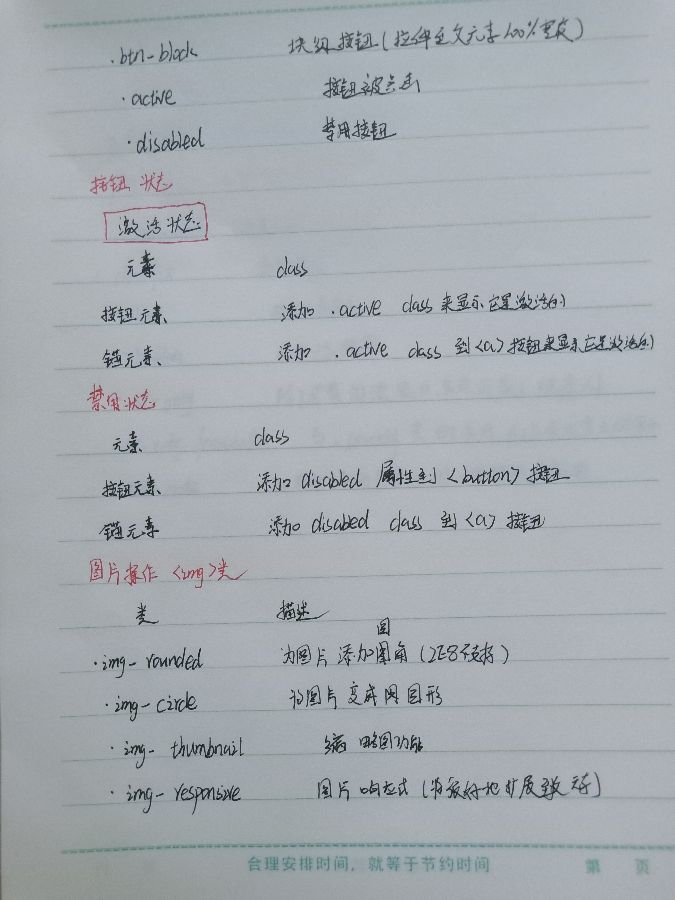 .btn-block 块级按钮(拉伸至父元素100%宽度)
.active 按钮被点击
.disabled 禁用按钮
按钮 状态
激活状态
元素 class
按钮元素 添加 .active class 来显示它是激活的
锚元素 添加 .active class 到 <a> 按钮来显示它是激活的
禁用状态
元素 class
按钮元素 添加 disabled 属性到 <button> 按钮
锚元素 添加 disabled class 到 <a> 按钮
图片操作 <img>类
类 描述
圆
.img-rounded 为图片添加圆角 (IE8不支持)
.img-circle 将图片变成圆形
.img-thumbnail 缩略图功能
.img-responsive 图片响应式 (将很好地扩展到父元素)
合理安排时间，就等于节约时间 第 页